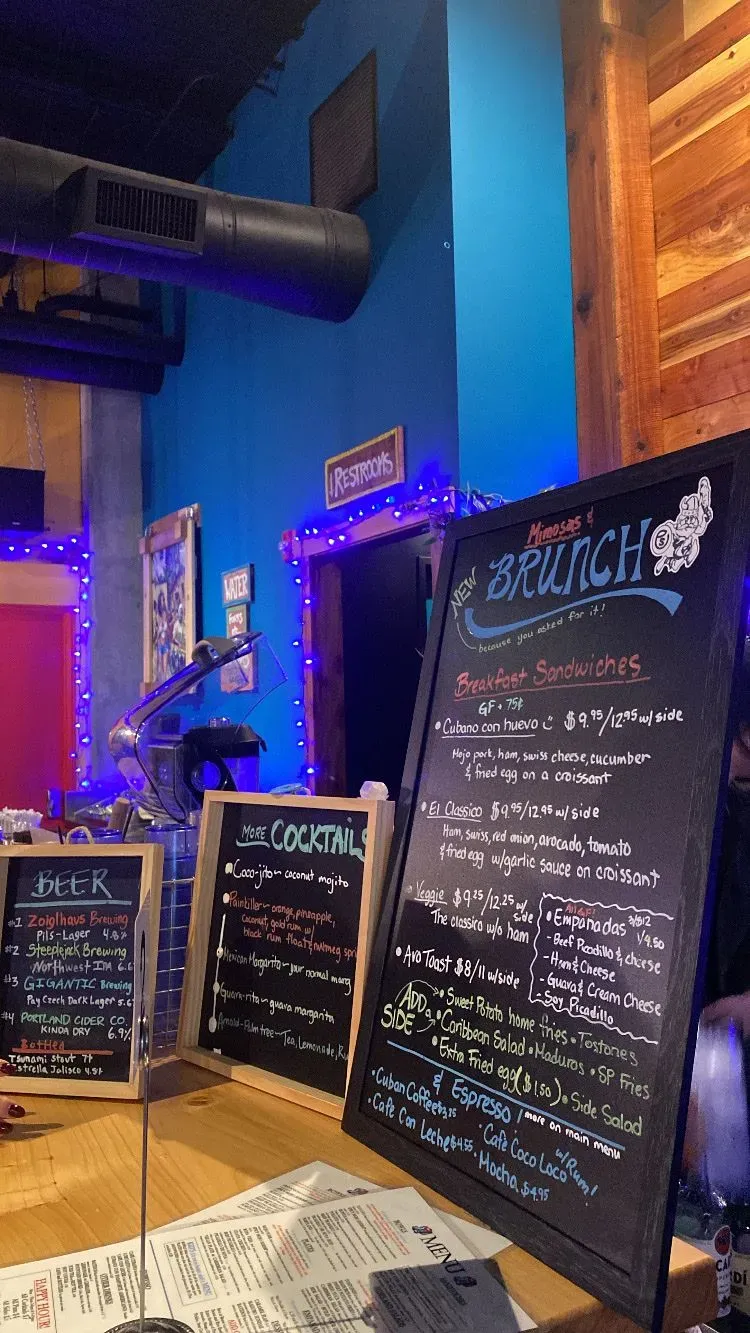 RESTROOMS
WATER
BEER
#1 Zoiglhaus Brewing
Pils-Lager 4.8%
#2 Steeplejack Brewing
Northwest IPA 6.
#3 GIGANTIC Brewing
Pav Czech Dark Lager 5.
#4 PORTLAND CIDER CO.
KINDA DRY 6.9%
Bottled
Tsunami Stout 7%
Estrella Jalisco 4.5%
MORE COCKTAILS
Coco-jito ~ coconut mojito
Painkiller ~ orange, pineapple,
coconut, gold rum w/
black rum float & nutmeg
Mexican Margarita ~ your normal marg
Guava-rita ~ guava margarita
Arnold-Palmtree ~ Tea, Lemonade,
Mimosas &
NEW BRUNCH
because you asked for it!
Breakfast Sandwiches
GF + 75¢
• Cubano con huevo $9.95/12.95 w/ side
Mojo pork, ham, swiss cheese, cucumber
& fried egg on a croissant
• El Classico $9.95/12.95 w/ side
Ham, swiss, red onion, avocado, tomato
& fried egg w/ garlic sauce on croissant
• Veggie $9.25/12.25 w/ side
The classico w/o ham
• Avo Toast $8/11 w/ side
All GF!
• Empanadas 3/$12
1/4.50
- Beef Picadillo & cheese
- Ham & Cheese
- Guava & Cream Cheese
- Soy Picadillo
ADD a SIDE
• Sweet Potato home fries • Tostones
• Caribbean Salad • Maduros • SP Fries
• Extra Fried egg ($1.50) • Side Salad
& Espresso! more on main menu
• Cuban Coffee $3.25
• Café Coco Loco w/ Rum!
• Café Con Leche $4.55
• Mocha $4.95
MENU
HAPPY HOUR!